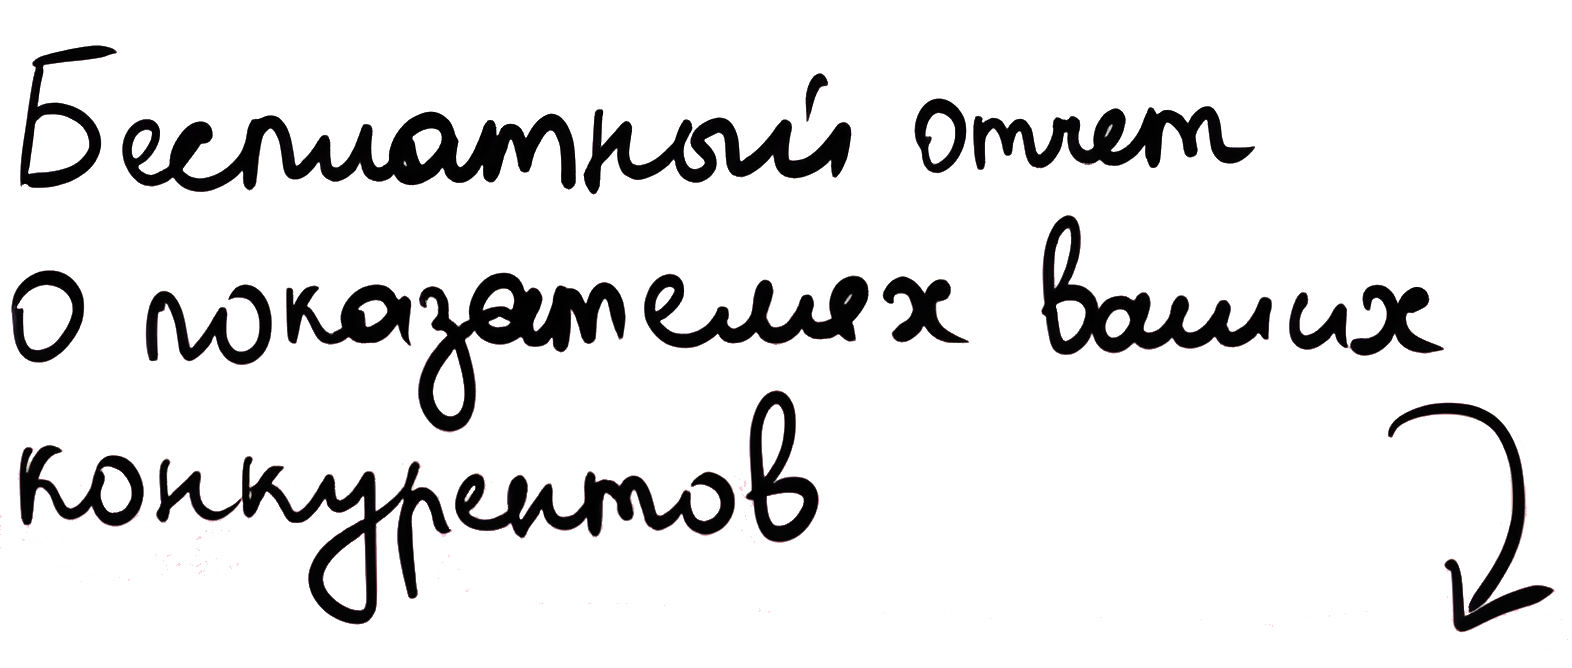 Бесплатный отчет
о показателях ваших
конкурентов